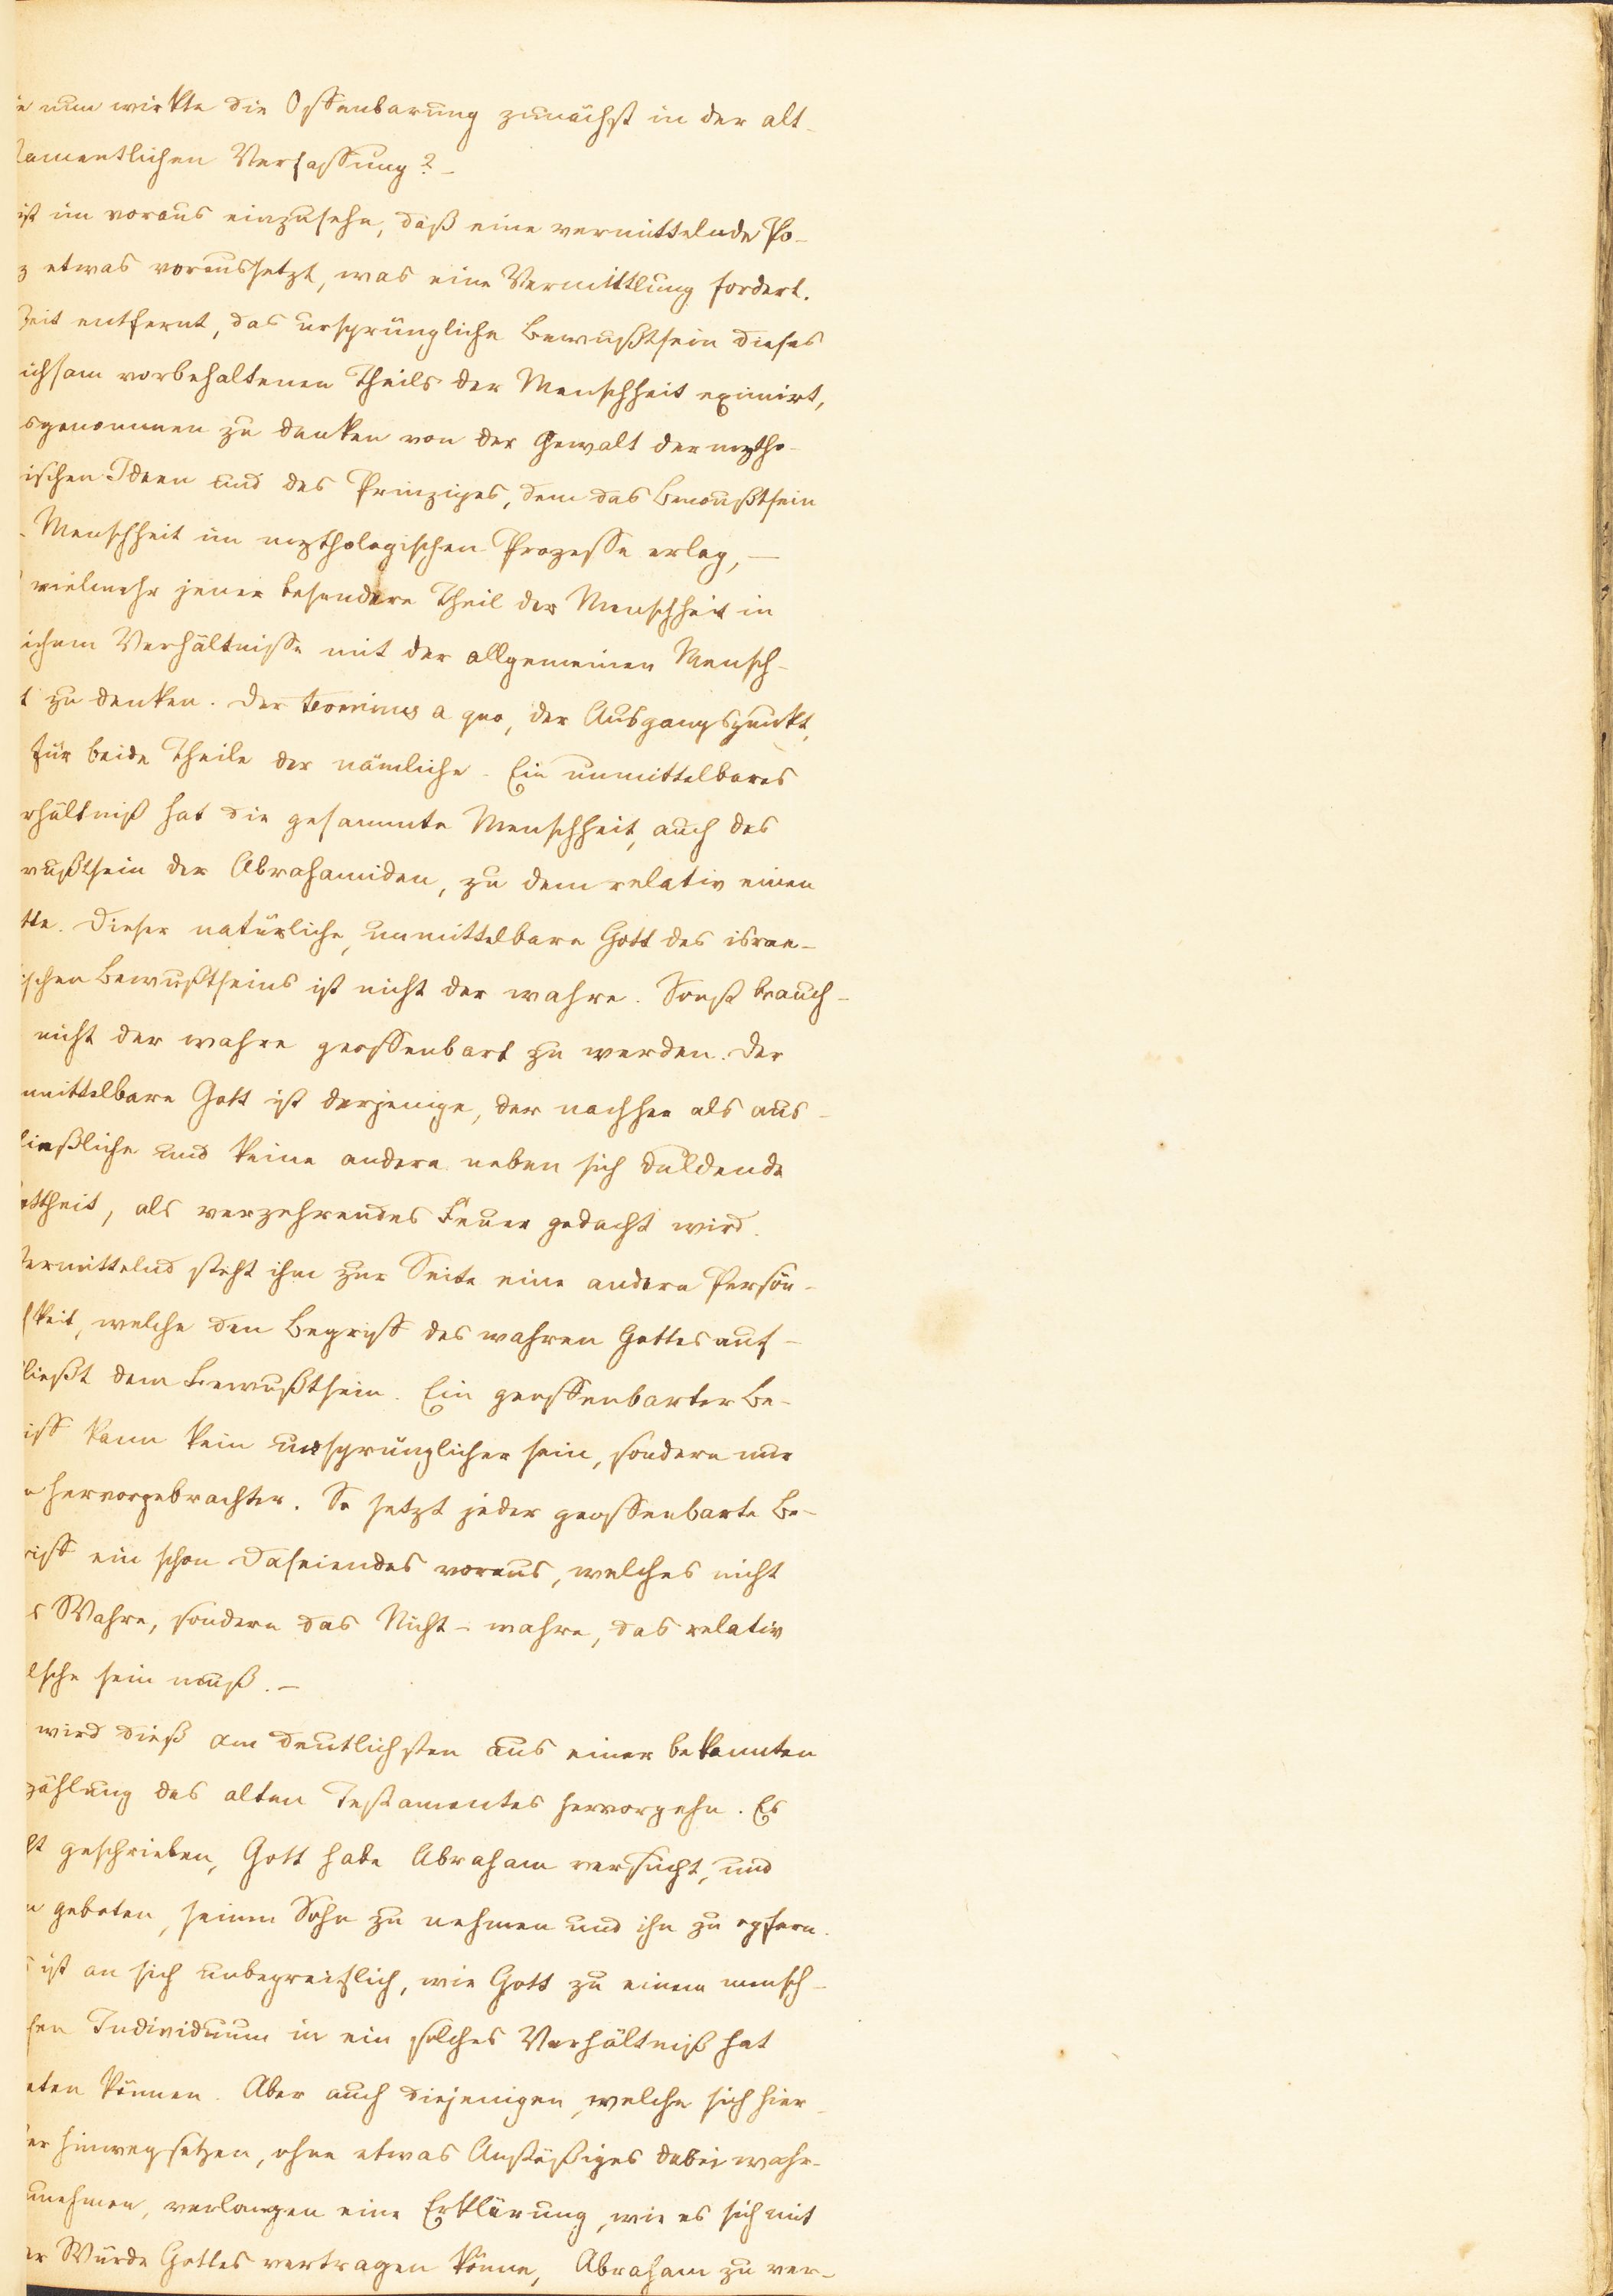 e nun wirkte die Offenbarung zunächst in der alt-
tamentlichen Verfassung? –
ist im voraus einzusehn, daß eine vermittelnde Po-
z etwas voraussetzt, was eine Vermittlung fordert.
Zeit entfernt, das ursprüngliche Bewußtsein dieses
ichsam vorbehaltenen Theils der Menschheit eximirt,
sgenommen zu denken von der Gewalt der mytho-
ischen Ideen und des Prinzipes, dem das Bewußtsein
Menschheit im mythologischen Prozesse erlag, –
vielmehr jener besondere Theil der Menschheit in
ichem Verhältnisse mit der allgemeinen Mensch-
t zu denken. Der terminus a quo, der Ausgangspunkt,
für beide Theile der nämliche. Ein unmittelbares
rhältniß hat die gesammte Menschheit, auch das
wußtsein der Abrahamiden, zu dem relativ einen
tte. Dieser natürliche, unmittelbare Gott des israe-
ischen Bewußtseins ist nicht der wahre. Sonst brauch-
nicht der wahre geoffenbart zu werden. Der
nmittelbare Gott ist derjenige, der nachher als aus-
ließliche und keine andere neben sich duldende
ottheit, als verzehrendes Feuer gedacht wird.
Vermittelnd steht ihm zur Seite eine andere Persön-
hkeit, welche den Begriff des wahren Gottes auf-
ließt dem Bewußtsein. Ein geoffenbarter Be-
iff kann kein ursprünglicher sein, sondern nur
n hervorgebrachter. So setzt jeder geoffenbarte Be-
riff ein schon Daseiendes voraus, welches nicht
s Wahre, sondern das Nicht-wahre, das relativ
lsche sein muß. –
wird dieß am deutlichsten aus einer bekannten
zählung des alten Testamentes hervorgehn. Es
ht geschrieben, Gott habe Abraham versucht, und
m geboten, seinen Sohn zu nehmen und ihn zu opfern.
s ist an sich unbegreiflich, wie Gott zu einem mensch-
hen Individuum in ein solches Verhältniß hat
eten können. Aber auch diejenigen, welche sich hier-
er hinwegsetzen, ohne etwas Anstößiges dabei wahr-
unehmen, verlangen eine Erklärung, wie es sich mit
er Würde Gottes vertragen könne, Abraham zu ver-